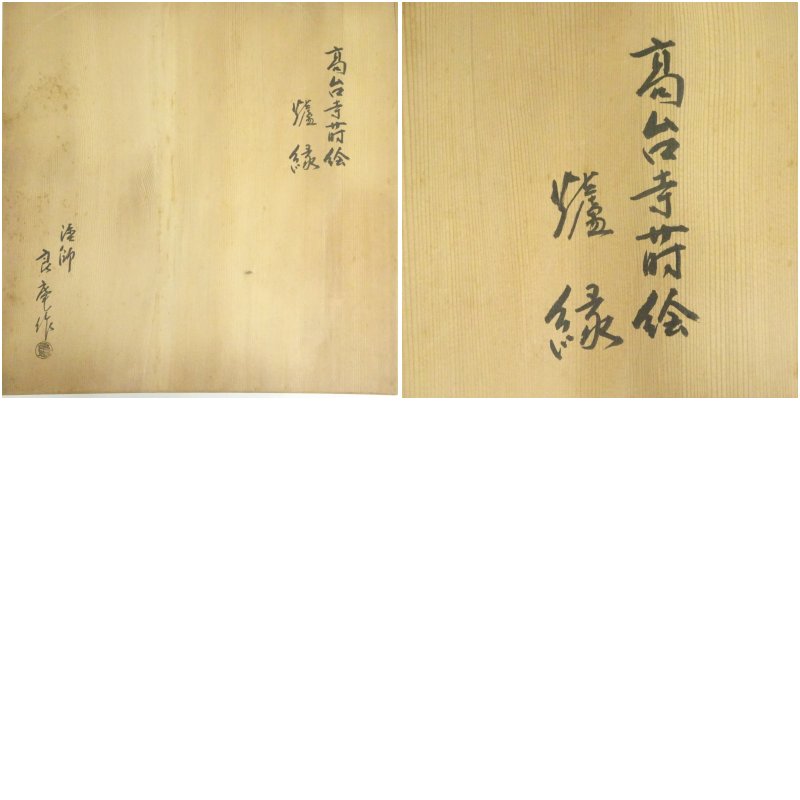 高台寺蒔絵
爐縁
塗師
良庵作
高台寺蒔絵
爐縁